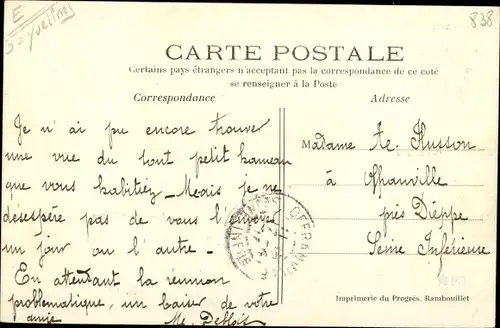 E
Yvelines
838
CARTE POSTALE
Certains pays étrangers n'acceptant pas la correspondance de ce coté
se renseigner à la Poste
Correspondance
Adresse
Je n'ai pu encore trouver
une vue du tout petit hameau
que vous habitiez _ Mais je ne
désespère pas de vous l'envoyer
un jour ou l'autre.
En attendant la réunion
problématique, un baiser de votre
amie
Madame Husson
à
près Dieppe
Seine Inférieure
OFFRANVILLE
Imprimerie du Progrès, Rambouillet